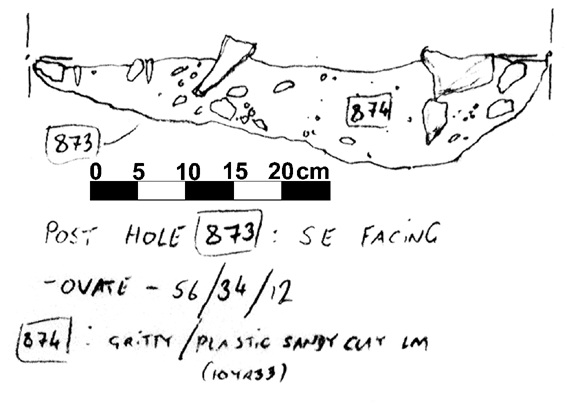 874
873
0 5 10 15 20cm
POST HOLE 873 : SE FACING
- OVATE - 56/34/12
874 : GRITTY/PLASTIC SANDY CLAY LM
(10YR33)